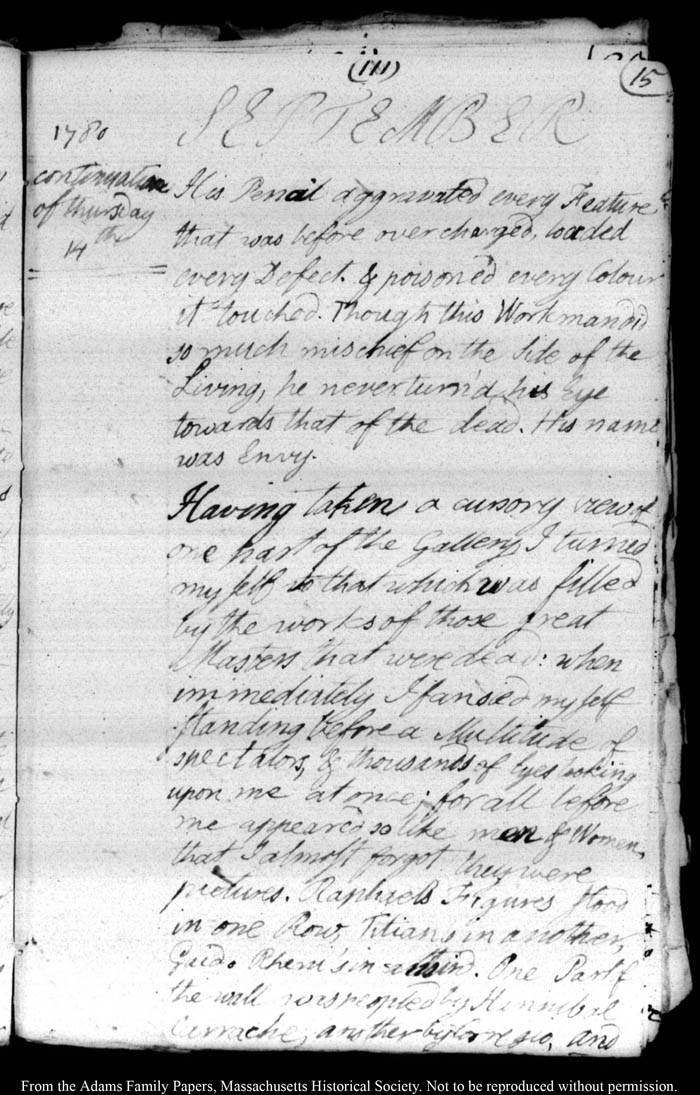 (111)
15
SEPTEMBER
1780
continuation
of thursday
14th
His Pencil aggravated every Feature
that was before overcharged, loaded
every Defect. & poison'd every Colour
it touched. Though this Workman did
so much mischief on the side of the
Living, he never turn'd his Eye
towards that of the dead. His name
was Envy.
Having taken a cursory view of
one part of the Gallery, I turned
my self to that which was filled
by the works of those great
Masters that were dead: when
immediately I fansed my self
standing before a Multitude of
spectators, & thousands of Eyes looking
upon me at once; for all before
me appeared so like men & Women,
that I almost forgot they were
pictures. Raphaels Figures stood
in one Row, Titians in another,
Guido Rheni's in a third. One Part of
the wall was peopled by Hannibal
Carrache, another by Corregio, and
From the Adams Family Papers, Massachusetts Historical Society. Not to be reproduced without permission.